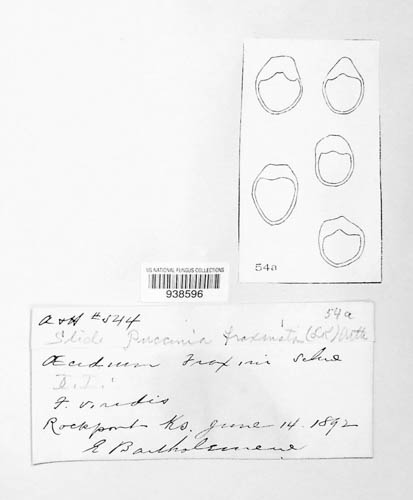 54a
US NATIONAL FUNGUS COLLECTIONS
938596
A & H #544 54a
Slide Puccinia fraxinata (Lk) Arth
Æcidium Fraxini Schw
F. viridis
Rockport Ks. June 14. 1892
E Bartholomew